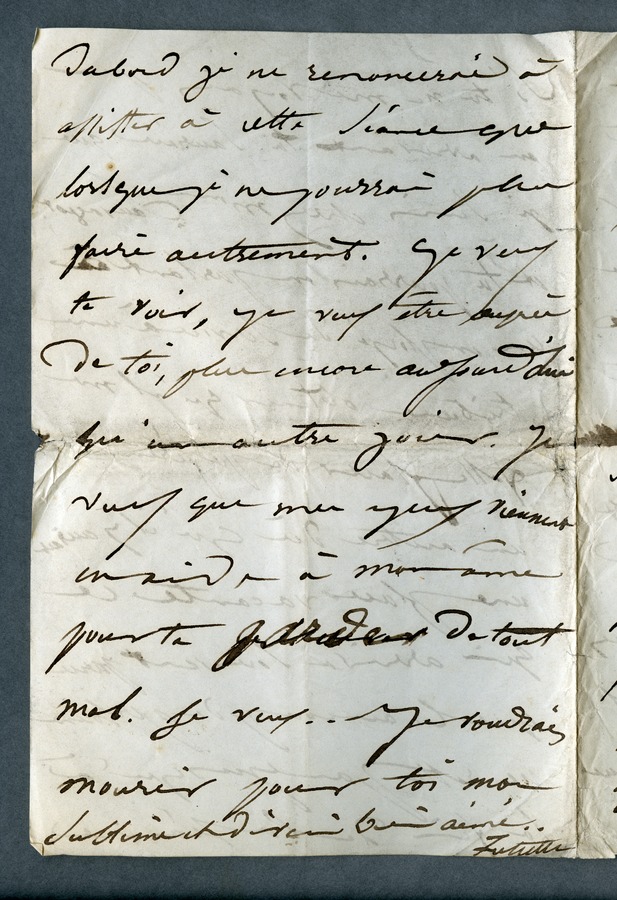 Dabord je ne renoncerai à
assister à cette séance que
lorsque je ne pourrai plus
faire autrement. Je veux
te voir, je veux être auprès
de toi, plus encore aujourd'hui
qu'un autre jour. Je
veux que mes yeux viennent
en aide à mon âme
pour te garder de tout
mal. Je veux.. Je voudrais
mourir pour toi mon
sublime et divin bien aimé..
Juliette